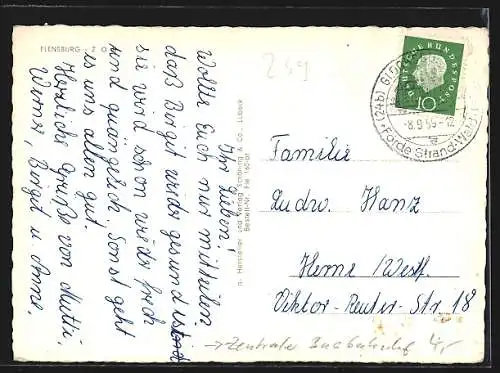 FLENSBURG - Z O
239
Ihr Lieben!
Wollte Euch nur mitteilen
daß Birgit wieder gesund ist und
sie wird schon wieder frech
und quängelich. Sonst geht
es uns allen gut.
Herzliche Grüße von Mutti,
Werner, Birgit u. Anne.
Hersteller und Verlag Schöning & Co., Lübeck
Bestell-Nr.
DEUTSCHE BUNDESPOST
10
(24b)
-8.9.59-12
Förde Strand Wald
Familie
Ludw. Hanz
Herne /Westf.
Viktor-Reuter-Str. 18
→ Zentraler Busbahnhof 4,-